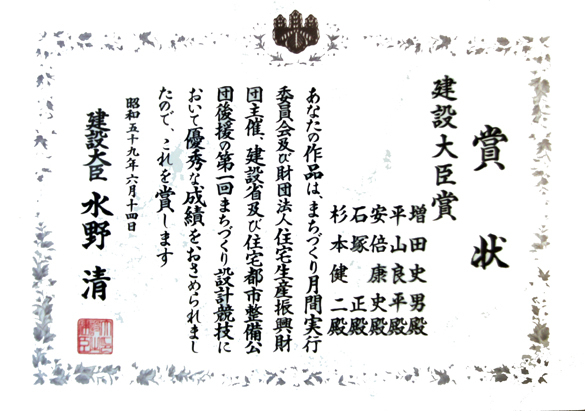 賞状
建設大臣賞
増田史男殿
平山良平殿
安倍康史殿
石塚正殿
杉本健二殿
あなたの作品は、まちづくり月間実行
委員会及び財団法人住宅生産振興財
団主催、建設省及び住宅都市整備公
団後援の第一回まちづくり設計競技に
おいて優秀な成績をおさめられまし
たので、これを賞します
昭和五十九年六月十四日
建設大臣 水野清